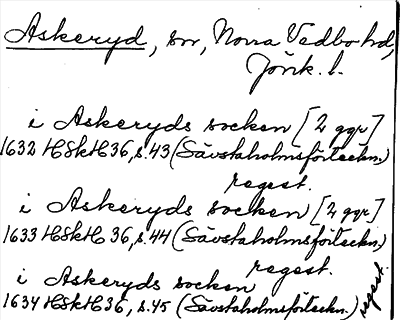 Askeryd, sn, Norra Vedbo hd,
Jönk. l.
i Askeryds socken [2 ggr]
1632 HSkH 36, s. 43 (Sävstaholmsförteckn.)
regest.
i Askeryds socken [2 ggr]
1633 HSkH 36, s. 44 (Sävstaholmsförteckn.)
regest.
i Askeryds socken
1634 HSkH 36, s. 45 (Sävstaholmsförteckn.)
regest.